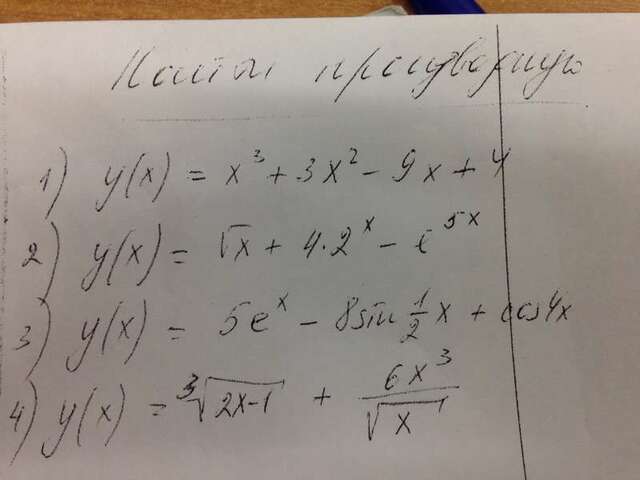 Найти производную
1) y(x) = x³ + 3x² - 9x + 4
2) y(x) = √x + 4·2ˣ - e⁵ˣ
3) y(x) = 5eˣ - 8sin ½x + cos4x
4) y(x) = ³√(2x-1) + 6x³/√x